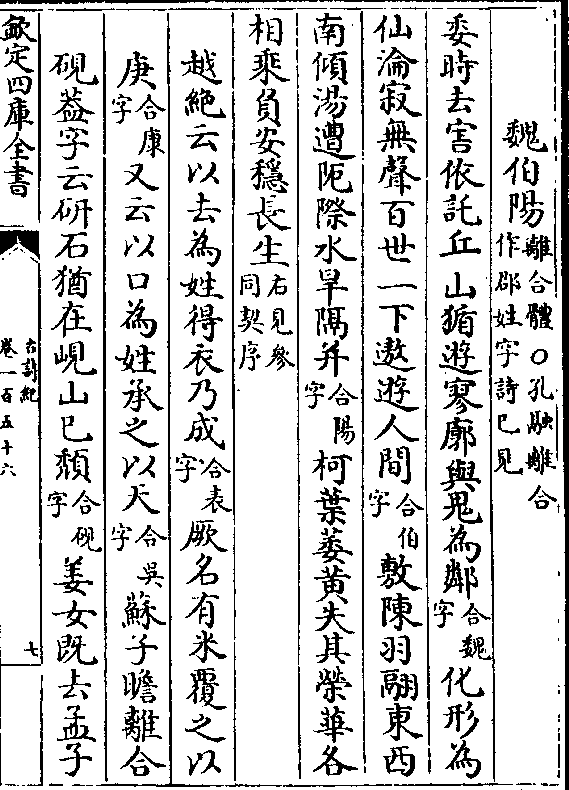 魏伯陽離合體○孔融離合作郡姓字詩已見
委時去害依託丘山循遊寥廓與鬼為鄰合魏字化形為
仙淪寂無聲百世一下遨遊人間合伯字敷陳羽翮東西
南傾湯遭阨際水旱隔并合陽字柯葉萎黄失其榮華各
相乘負安穩長生右見參同契序
越絶云以去為姓得衣乃成合表字厥名有米覆之以
庚合康字又云以口為姓承之以天合吳字蘇子瞻離合
硯葢字云研石猶在峴山已頹合硯字姜女既去孟子
欽定四庫全書
古詩紀
卷一百五十六
七